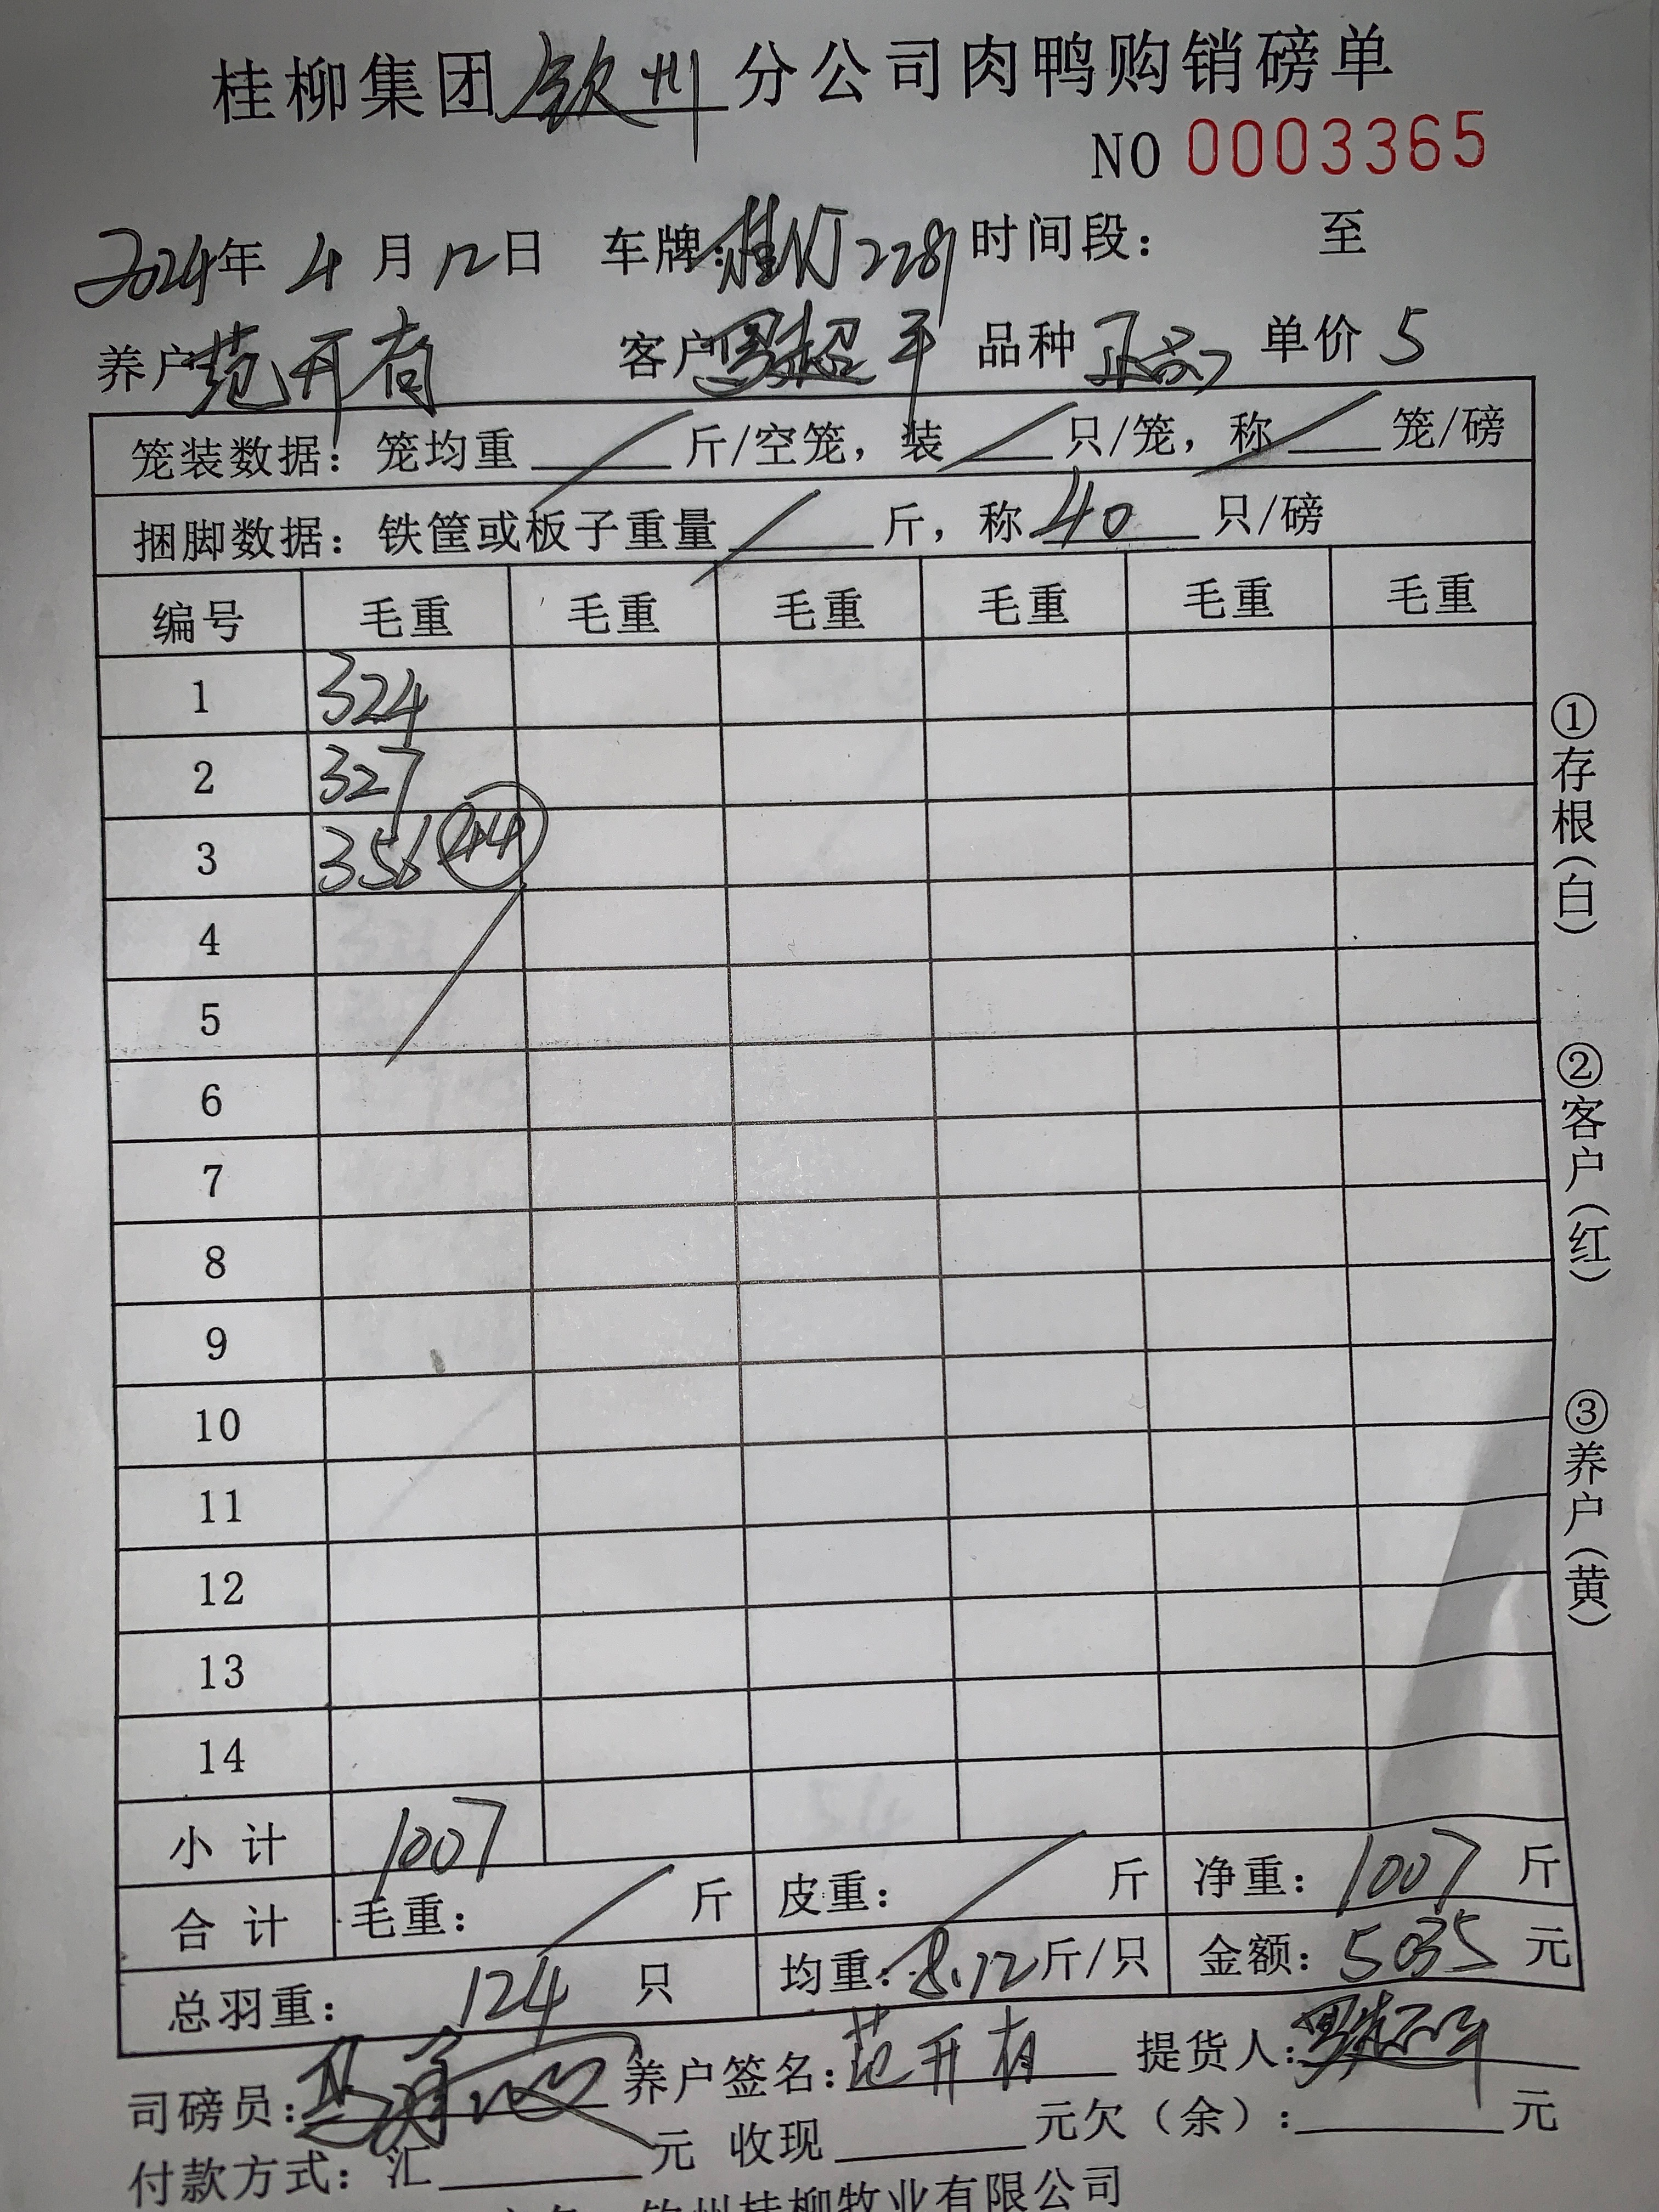 桂柳集团钦州分公司肉鸭购销磅单
NO 0003365
2024年 4月12日 车牌: 时间段: 至
养户范开有 客户罗超平 品种正品 单价5
笼装数据: 笼均重 / 斤/空笼, 装 / 只/笼, 称 / 笼/磅
捆脚数据: 铁筐或板子重量 / 斤, 称 40 只/磅
编号 毛重 毛重 毛重 毛重 毛重 毛重
1 324
2 327
3 356 44
4
5
6
7
8
9
10
11
12
13
14
小计 1007
合计 毛重: / 斤 皮重: / 斤 净重: 1007 斤
总羽重: 124 只 均重: 8.12斤/只 金额: 5035 元
司磅员: 养户签名: 范开有 提货人: 罗超平
付款方式: 汇 元 收现 元欠(余): 元
钦州桂柳牧业有限公司
①存根(白)
②客户(红)
③养户(黄)